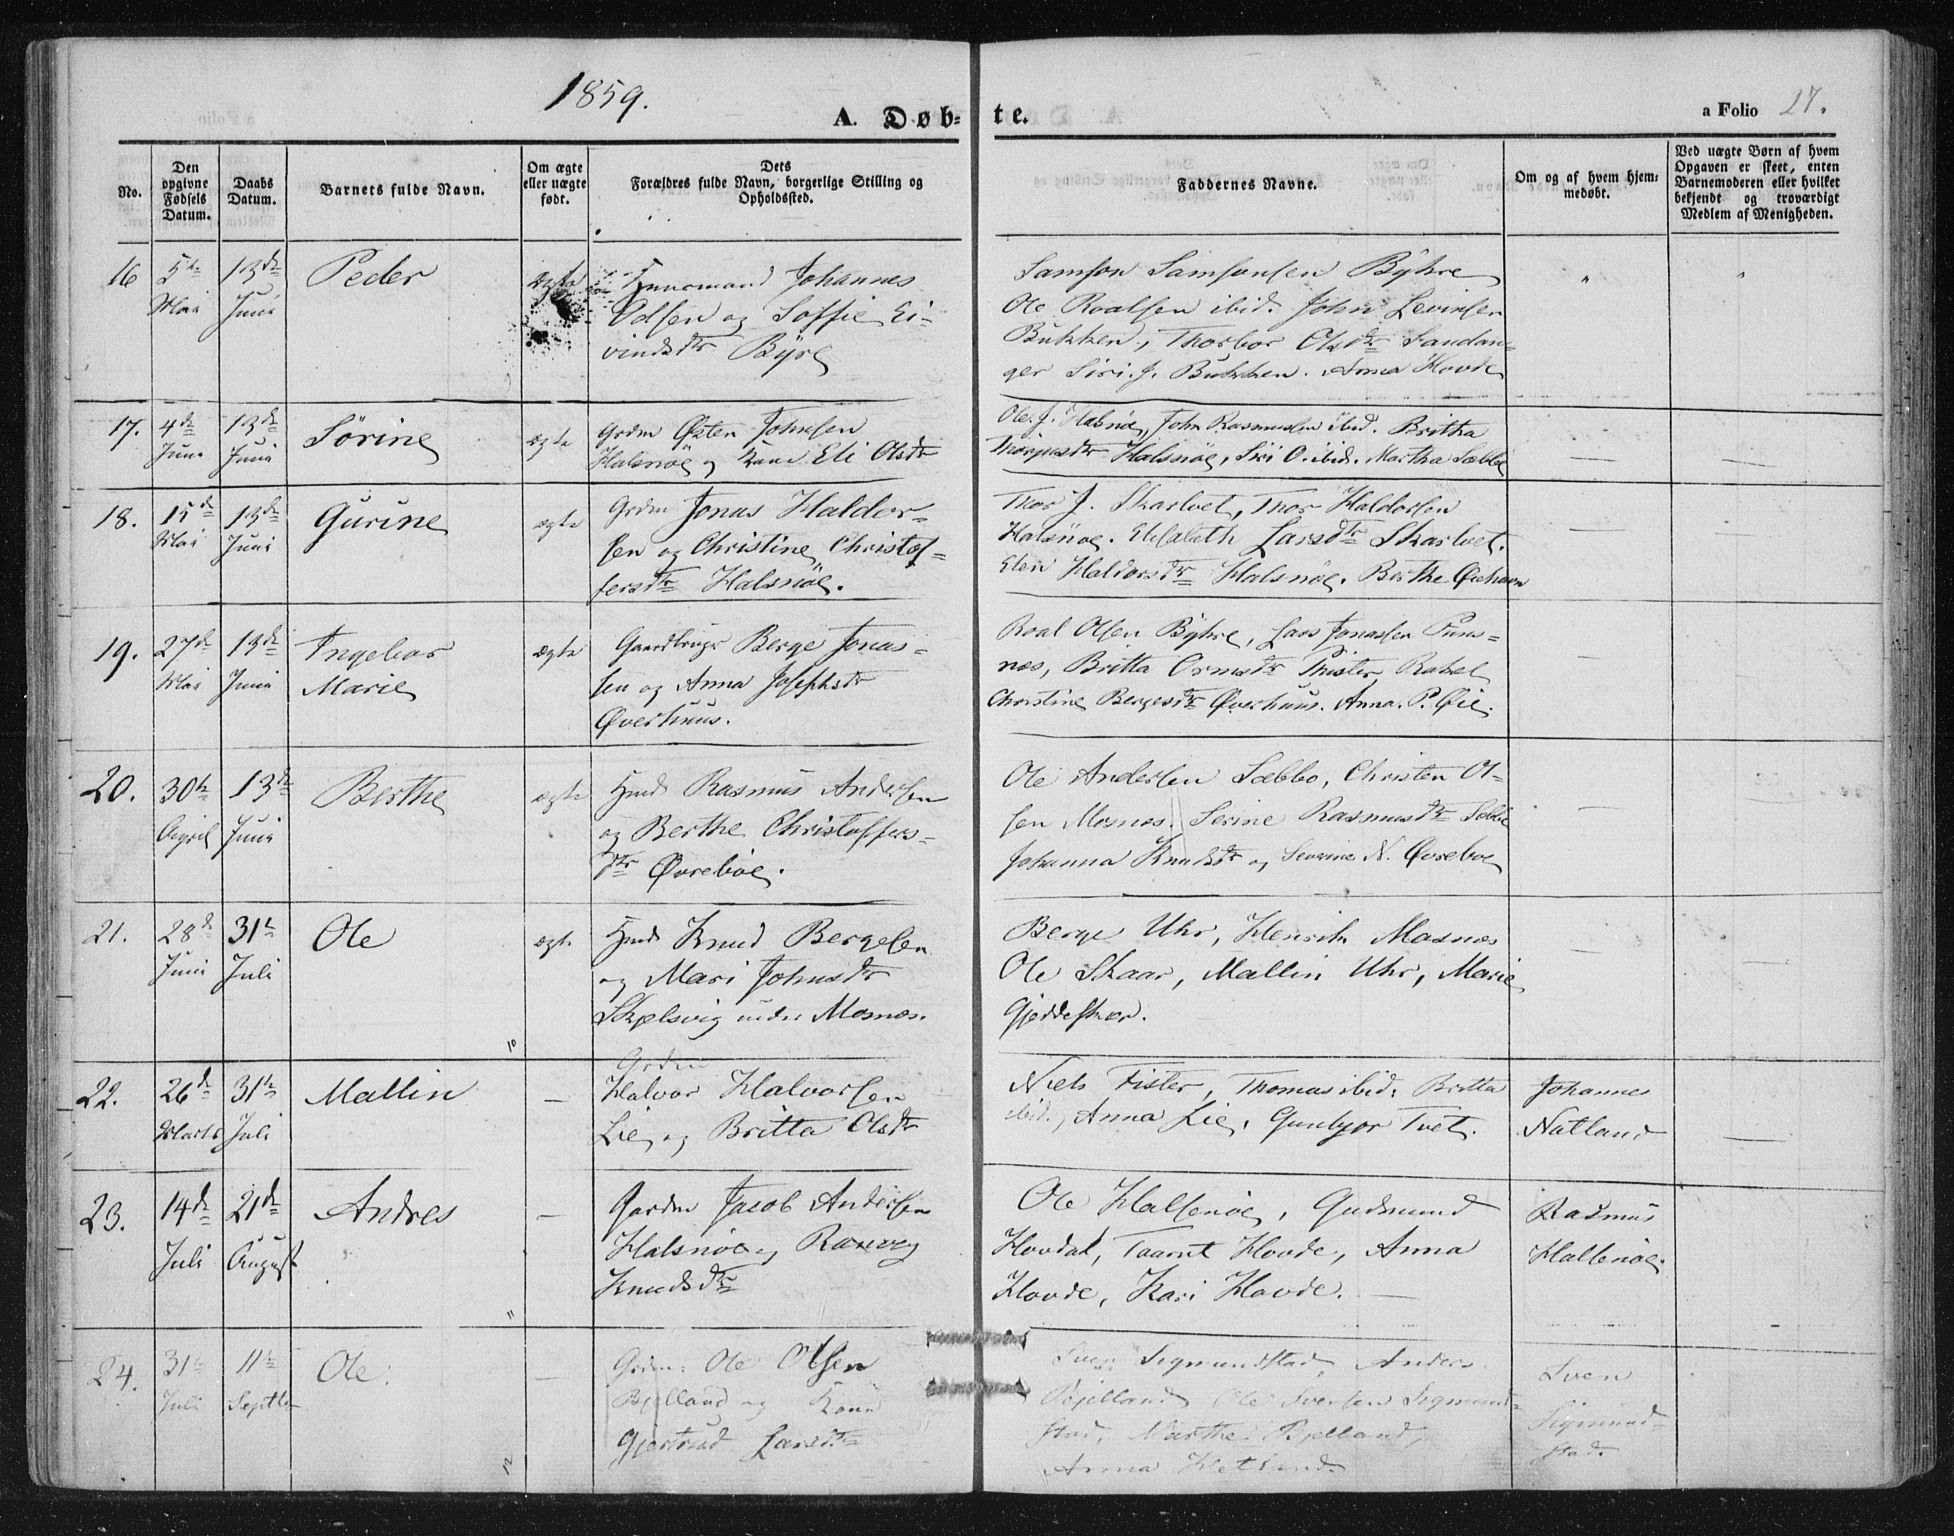 1859.
A. Døb-
te.
a Folio 27.
No.
Den opgivne Fødsels Datum.
Daabs Datum.
Barnets fulde Navn.
Om ægte eller uægte født.
Dets Forældres fulde Navn, borgerlige Stilling og Opholdssted.
Faddernes Navne.
Om og af hvem hjemmedøbt.
Ved uægte Børn af hvem Opgaven er skeet, enten Barnemoderen eller hvilket bekjendt og troværdigt Medlem af Menigheden.
16
5te Mai
13de Juni
Peder
ægte
Huusmand Johannes
Odsen og Soffie Ei-
vindsdtr Byre
Samson Samsonsen Byhre
Ole Roalsen ibid. John Levinsen
Bukken, Thorbor Olsdtr Sandan-
ger Siri J. Bukken. Anna Hovde
17.
4de Juni
13de Juni
Sørine
ægte
Grdm Østen Johnsen
Halsnøe og Kone Eli Olsdtr
Ole J. Halsnøe, John Rasmussen ibid. Britha
Halsnøe, Siri O. ibid. Martha Sæbbø
18.
15de Mai
13de Juni
Gurine
ægte
Grdm Jonas Haldor-
sen og Christine Christof-
fersdtr Halsnöe.
Thor J. Skartvet, Thor Haldorsen
Halsnøe. Elisabeth Larsdtr Skartvet.
Elen Haldorsdtr Halsnøe. Berthe Øiehavn
19.
27de Mai
13de Juni
Ingebor
Marie
ægte
Gaardbruger Berge Jonas-
sen og Anna Josephsdtr
Øverhuus.
Roal Olsen Byhre, Lars Jonassen Puns-
nes, Britta Ormsdtr Fister, Rakel
Christine Bergesdtr Øverhuus. Anna P. Øie.
20.
30te April
13de Juni
Berthe
ægte
Hmd Rasmus Andersen
og Berthe Christoffers-
dtr Øvrebøe.
Ole Andersen Sæbbø, Christen Ol-
sen Mosnes. Serine Rasmusdtr Sæbbø
Johanna Knudsdtr og Severine N. Øvrebøe
21.
28de Juni
31te Juli
Ole
ægt.
Hmd Knud Bergesen
og Mari Johnsdtr
Skjelsvig under Mosnes.
Berge Uhr, Henrik Mosnes
Ole Skaar, Mallin Uhr, Marie
Gjeddeskaar.
10
22.
26de Marts
31te Juli
Mallin
—
Grdm
Halvor Halvorsen
Lie og Britta Olsdtr
Niels Fister, Thomas ibid: Britta
ibid., Anna Lie, Gunbjor Tvet.
Johannes
Natland
23.
14de Juli
21de August
Andres
—
Gardm Jacob Andersen
Halsnøe og Ranveg
Knudsdtr
Ole Halsenøe, Gudmund
Hovdal, Taarnt Hovde, Anna
Hovde, Kari Hovde.
Rasmus
Halsenøe.
11
24.
31te Juli
11te Septbr
Ole.
—
Grdm: Ole Olsen
Bjelland og Kone
Gjertrud Larsdtr
Sven Sigmundstad, Anders
Bjelland, Ole Svensen Sigmund-
stad, Marthe Bjelland,
Anna Hetland.
Sven
Sigmund-
stad.
12